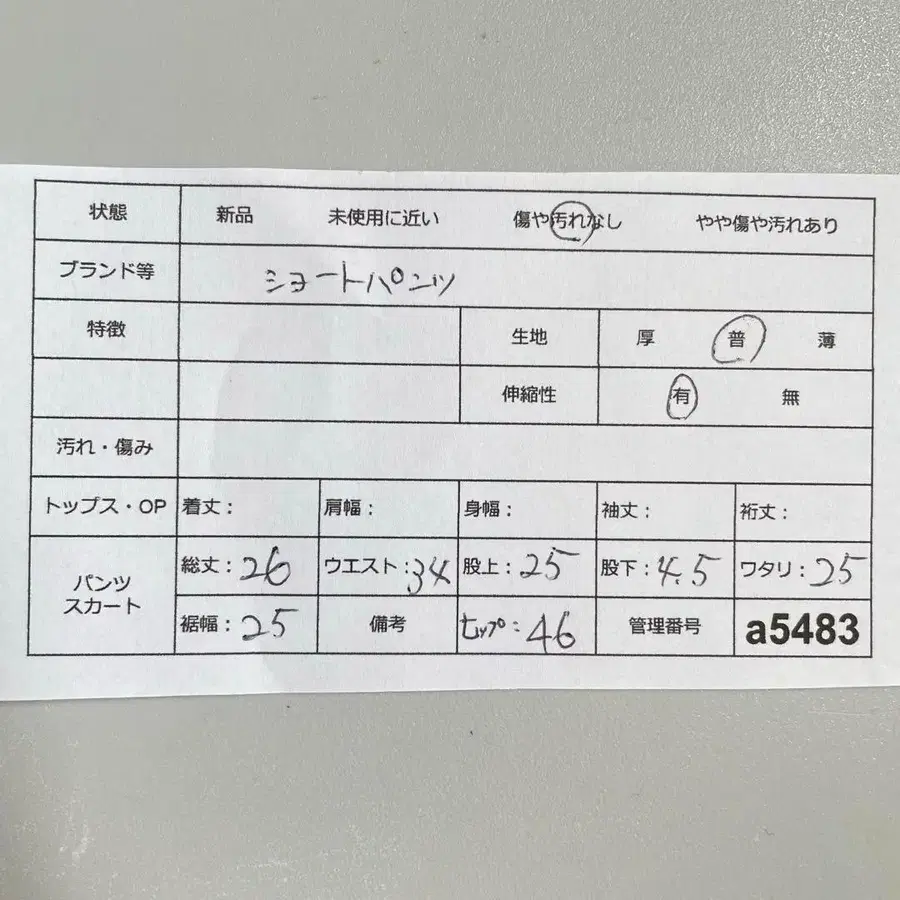 状態 新品 未使用に近い 傷や汚れなし やや傷や汚れあり
ブランド等 ショートパンツ
特徴 生地 厚 普 薄
伸縮性 有 無
汚れ・傷み
トップス・OP 着丈: 肩幅: 身幅: 袖丈: 裄丈:
パンツ
スカート
総丈:26 ウエスト:34 股上:25 股下:4.5 ワタリ:25
裾幅:25 備考 ヒップ:46 管理番号 a5483